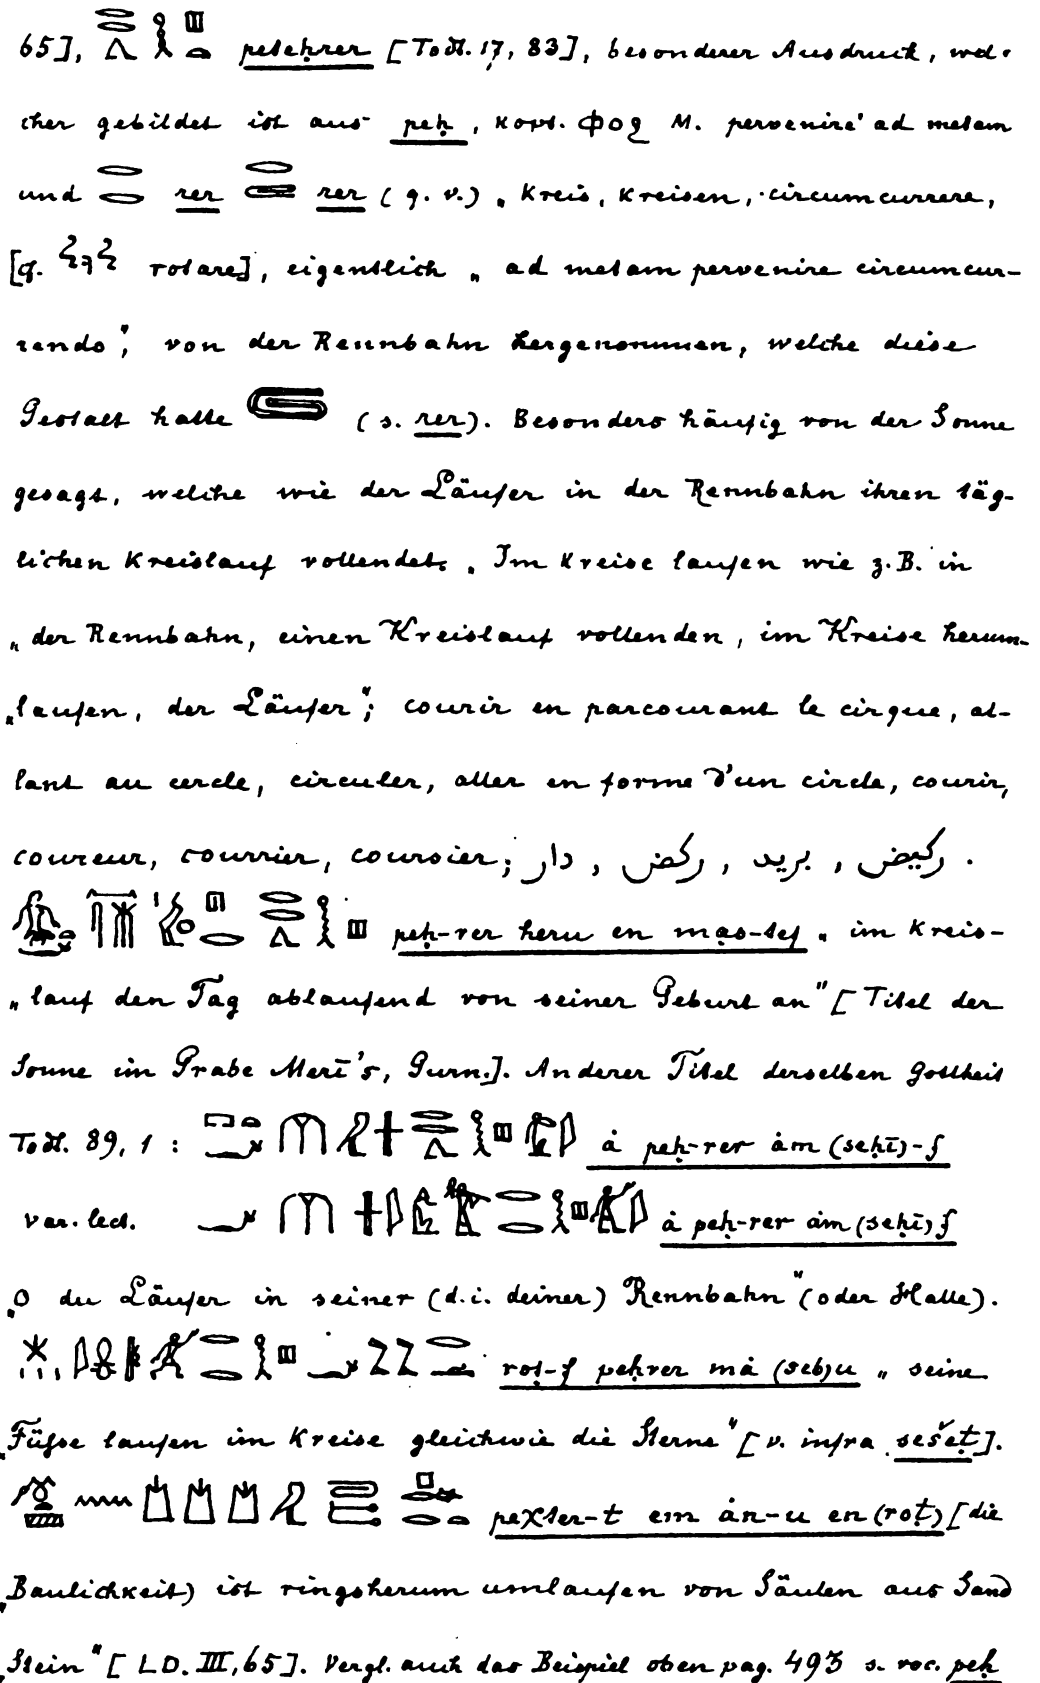 65], peteḥrer [Todt. 17, 83], besonderer Ausdruck, wel-
cher gebildet ist aus peḥ, kopt. ⲫⲟϩ M. pervenire ad metam
und rer rer (q. v.) „Kreis, kreisen, circumcurrere,
[cf. rotare], eigentlich „ad metam pervenire circumcur-
rendo“, von der Rennbahn hergenommen, welche diese
Gestalt hatte (s. rer). Besonders häufig von der Sonne
gesagt, welche wie der Läufer in der Rennbahn ihren täg-
lichen Kreislauf vollendet. „Im Kreise laufen wie z.B. in
„der Rennbahn, einen Kreislauf vollenden, im Kreise herum-
„laufen, der Läufer“; courir en parcourant le cirque, al-
lant au cercle, circuler, aller en forme d'un circle, courir,
coureur, courrier, coursier; دار , ركض , بريد , ركيض .
peḥ-rer heru en mạs-tef „im Kreis-
„lauf den Tag ablaufend von seiner Geburt an“ [Titel der
Sonne im Grabe Merī's, Gurn.]. Anderer Titel derselben Gottheit
Todt. 89, 1 : ȧ peḥ-rer ȧm (seḥī)-f
var. lect. ȧ peḥ-rer ȧm (seḥī) f
„O du Läufer in seiner (d.i. deiner) Rennbahn“ (oder Halle).
roṭ-f peḥrer mȧ (seb)u „seine
„Füsse laufen im Kreise gleichwie die Sterne“ [v. infra sešeṭ].
peχter-t em ȧn-u en (roṭ) [die
„Baulichkeit) ist ringsherum umlaufen von Säulen aus Sand
„Stein“ [LD. III, 65]. Vergl. auch das Beispiel oben pag. 493 s. voc. peḥ